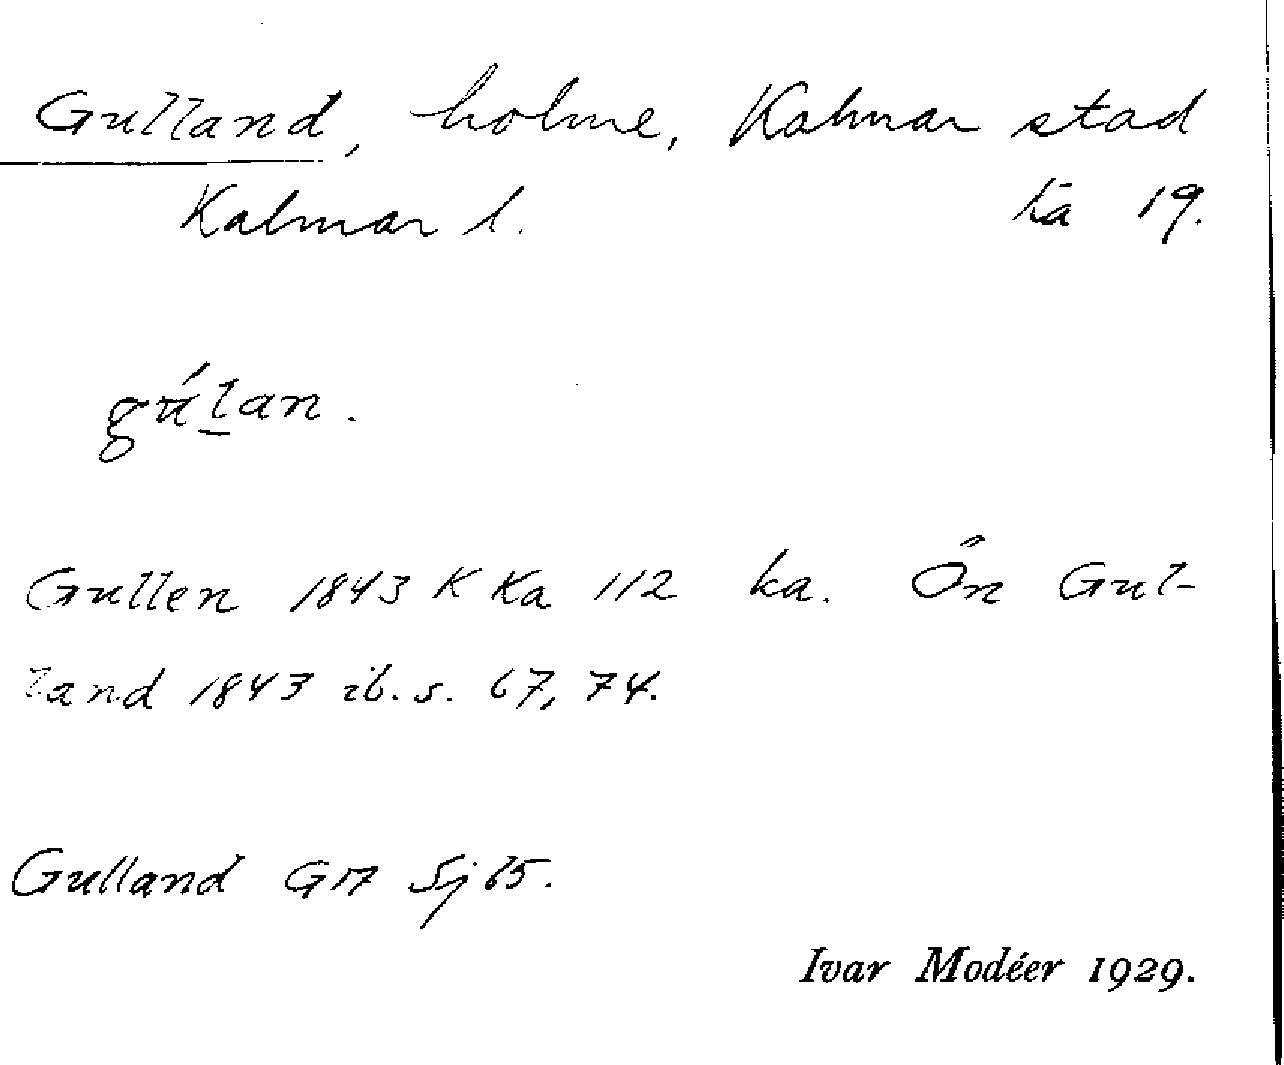 Gulland, holme, Kalmar stad
Kalmar l. kä 19.
gúlan.
Gullen 1843 K Ka 112 ka. Ön Gul-
land 1843 ib. s. 67, 74.
Gulland G17 Sj 65.
Ivar Modéer 1929.